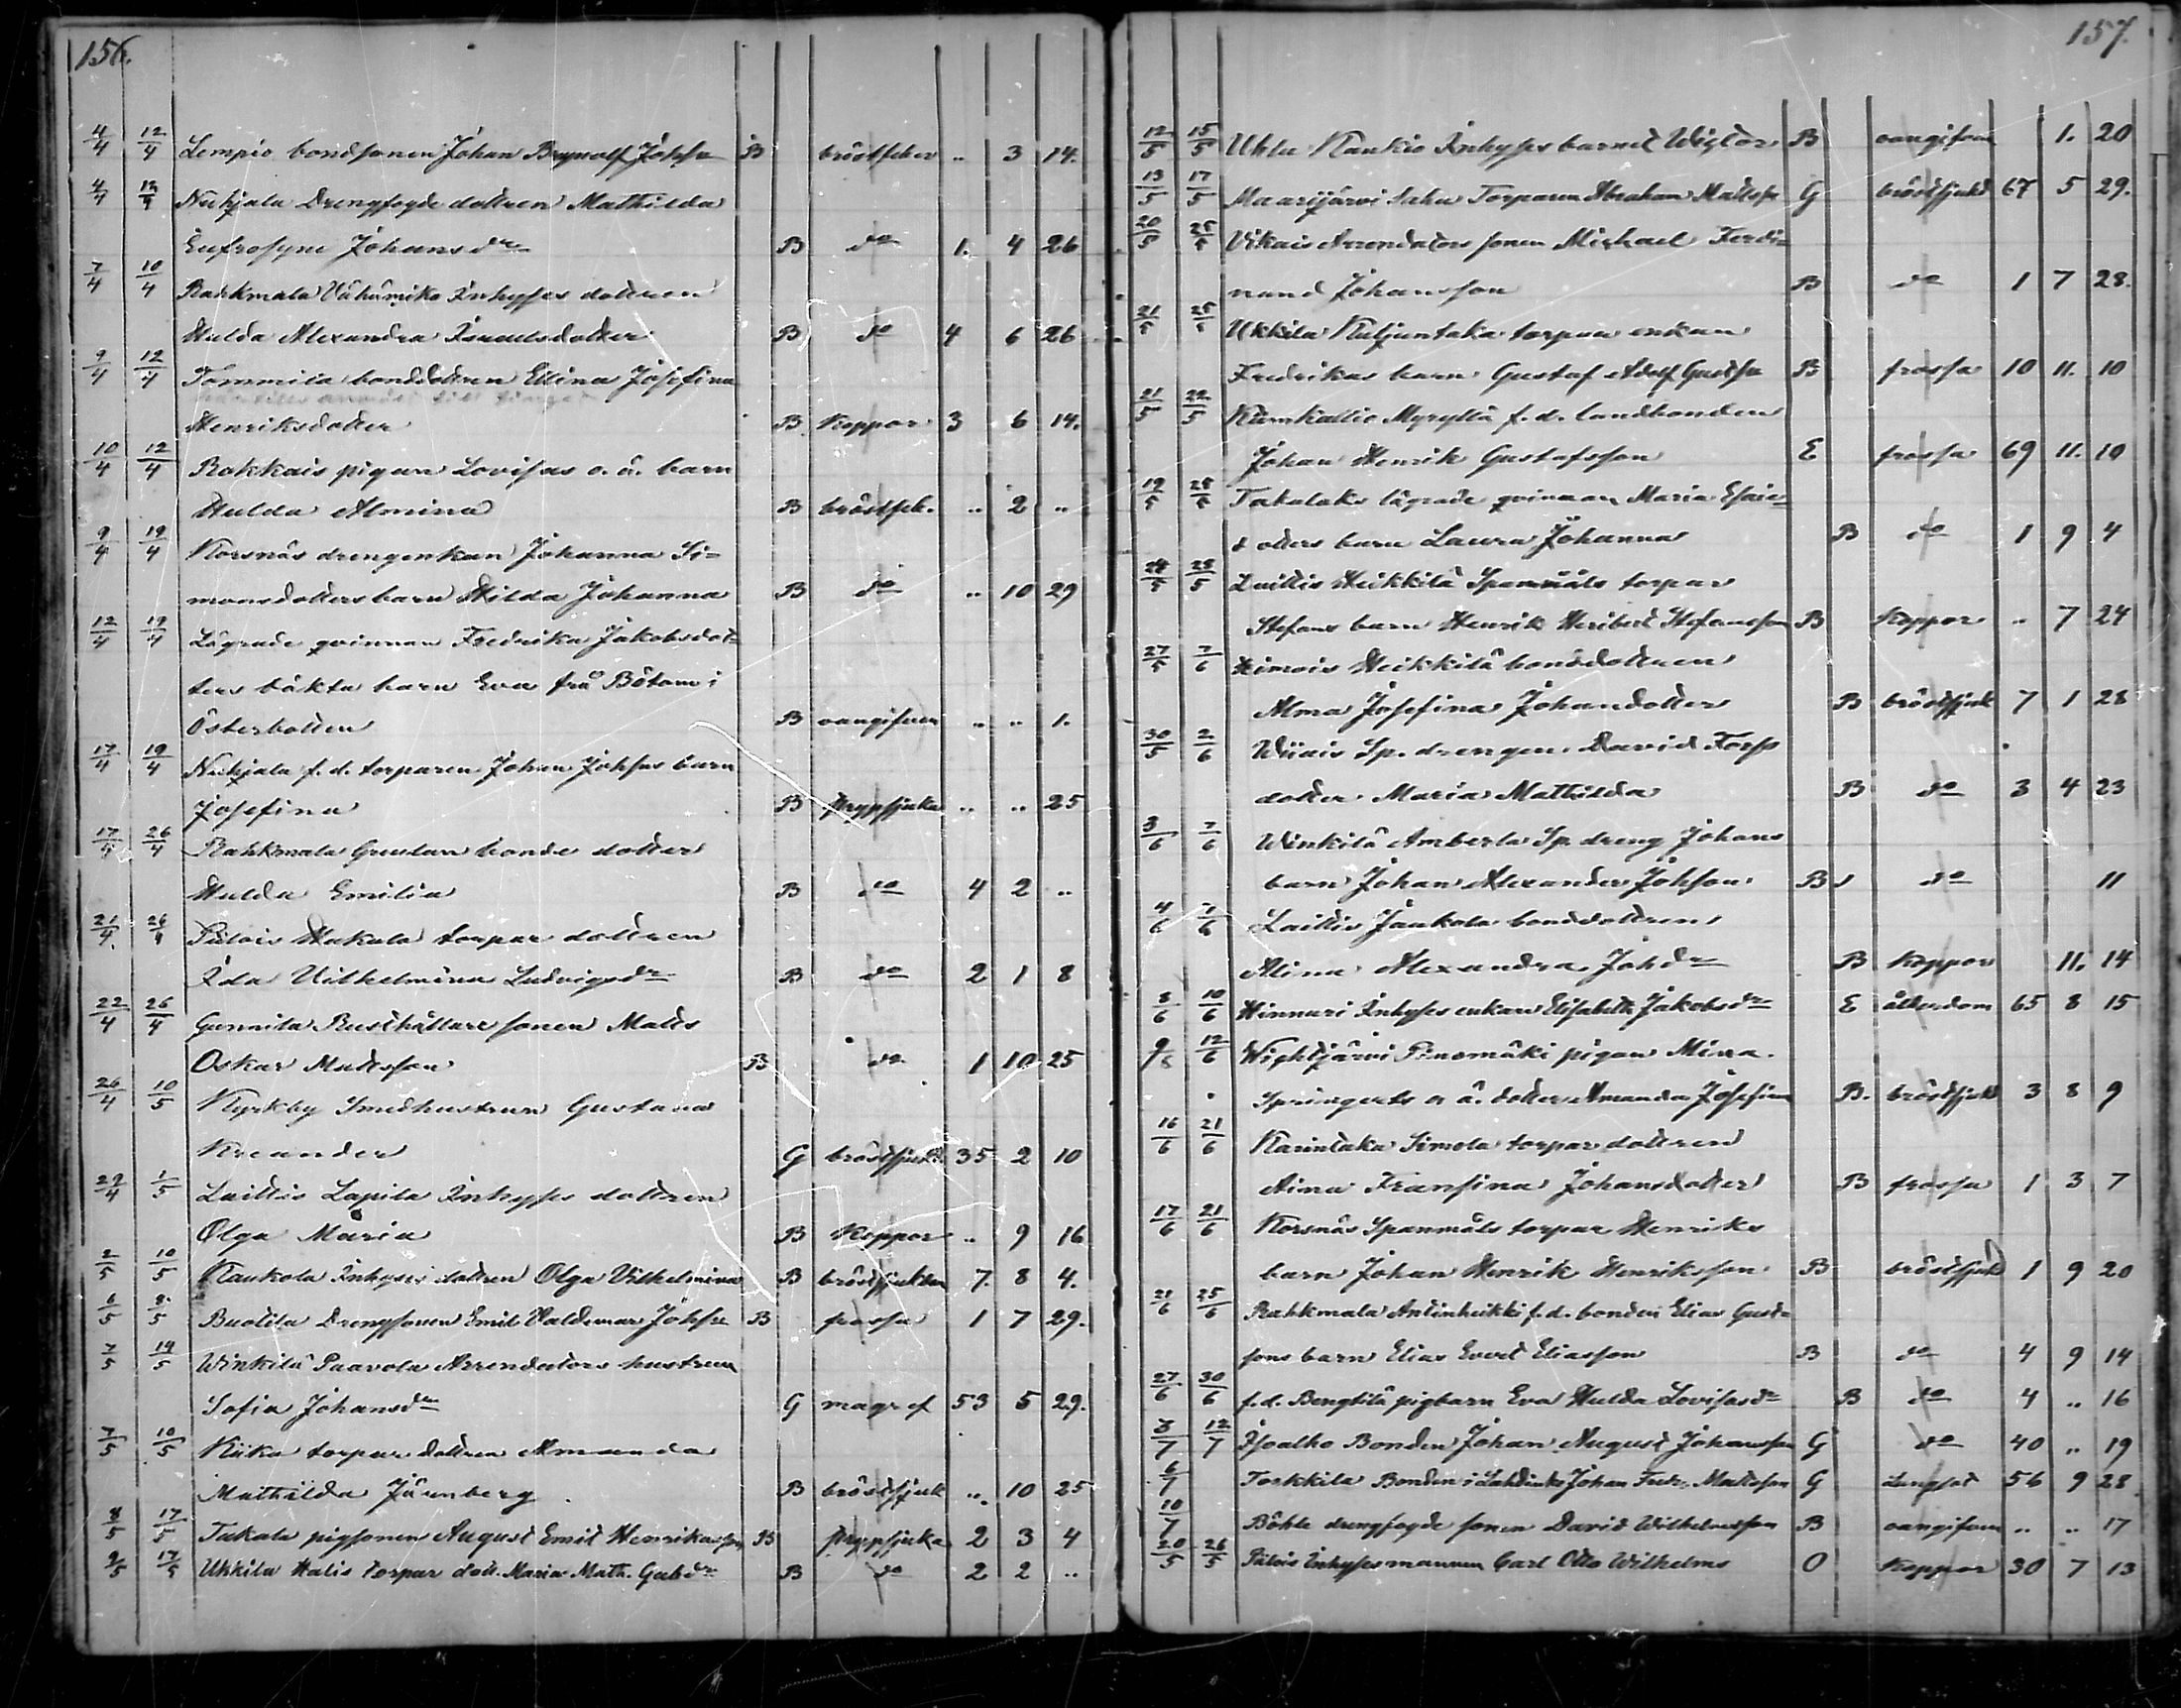 156.
4/4 12/4 Lempis bondsonen Johan Brynolf Johss B bröstfeber .. 3 14.
4/4 12/4 Nuhjala Drengfogde dottren Mathilda
Eufrosyne Johansdr B do 1. 4 26
7/4 10/4 Rahkmala Vähämiko Inhyses dottren
Hulda Alexandra Isaaksdotter B do 4 6 26
9/4 12/4 Tommila bonddottren Elina Josefina
Henriksdotter B Koppor 3 6 14.
10/4 12/4 Rokkais pigan Lovisas o. ä. barn
Hulda Almina B bröstsjuk. .. 2 ..
9/4 19/4 Korsnäs drengenkan Johanna Si=
monsdotters barn Hilda Johanna B do .. 10 29
12/4 19/4 Lägrade qvinnan Fredrika Jakobsdot=
ters oäkta barn Eva frå Bötom i
Österbotten B oangifven .. .. 1.
17/4 19/4 Nuhjala f. d. torparen Johan Johssns barn
Josefina B strypsjuka .. .. 25
17/4 26/4 Rahkmala Gruulan bonde dotter
Hulda Emilia B do 4 2 ..
21/4. 26/4 Pülois Hakala torpar dottren
Ida Vilhelmina Ludvigsdr B do 2 1 8
22/4 26/4 Gunnila Rusthållare sonen Matts
Oskar Mattsson B do 1 10 25
26/4 10/5 Kyrkby Smedhustrun Gustava
Kreander G bröstsjukd. 35 2 10
29/4 1/5 Laittis Lapila Inhyses dottren
Olga Maria B Koppor .. 9 16
2/5 10/5 Kaukola Inhyses dottren Olga Vilhelmina B bröstsjukdom 7. 8 4.
6/5 8/5 Buotila Drengsonen Emil Valdemar Johsson B frossa 1 7 29.
7/5 19/5 Winkilä Paavola Arrendators hustrun
Sofia Johansdr G magref 53 5 29.
7/5 10/5 Kiika torpar dottren Amanda
Mathilda Järnberg B bröstsjuk .. 10 25
8/5 17/5 Takala pigsonen August Emil Henriksson B strypsjuka 2 3 4
9/5 17/5 Ukkila Halis torpar dott. Maria Math. Gabdr B do 2 2 ..
157.
12/5 15/5 Uhlu Kaukis Inhyses barnet Wigtor B oangifven 1. 20
13/5 17/5 Maarijärvi Sahu Torparen Abraham Mattss G bröstsjukd 67 5 29.
20/5 25/5 Vikais Arrendators sonen Michael Ferdi=
nand Johansson B do 1 7 28.
21/5 25/5 Ukkila Kuljuntaka torpare enkan
Fredrikas barn Gustaf Adolf Gustss B frossa 10 11. 10
21/5 22/5 Kumkallio Myryllä f. d. landbonden
Johan Henrik Gustafsson E frossa 69 11. 10
19/5 25/5 Takalaks lägrade qvinnan Maria Esaie=
dotters barn Laura Johanna B do 1 9 4
24/5 28/5 Laittis Heikkilä Spanmåls torpar
Stefans barn Henrik Heribert Stefansson B Koppor .. 7 24
27/5 7/6 Heinois Heikkilä bonddottren
Alma Josefina Johansdotter B bröstsjuk 7 1 28
30/5 2/6 Wiiais Sp. drengen David Forss
dotter Maria Mathilda B do 3 4 23
3/6 7/6 Winkilä Amberla Sp. dreng Johans
barn Johan Alexander Johsson B do 11
4/6 7/6 Laittis Jaakola bonddottren
Alina Alexandra Johdr B Koppor 11. 14
8/6 10/6 Hinnuri Inhyses enkan Elisabeth Jakobsdr E ålderdom 65 8 15
9/6 12/6 Wightjärvi Pinomäki pigan Mina
Springerts o ä. dotter Amanda Josefina B. bröstsjukd 3 8 9
16/6 21/6 Karintaka Simola torpar dottren
Aina Fransina Johansdotter B frossa 1 3 7
17/6 21/6 Korsnäs Spanmåls torpar Henriks
barn Johan Henrik Henriksson B bröstsjukd 1 9 20
21/6 25/6 Rahkmala Antinheikki f. d. bonden Elias Gust=
sons barn Elias Evert Eliasson B do 4 9 14
27/6 30/6 f. d. Bengtilä pigbarn Eva Hulda Lovisasdr B do 4 .. 16
3/7 12/7 Isoalho Bonden Johan August Johansson G do 40 .. 19
6/7 Torkkila Bonden i Lahdinko Johan Fredr. Mattsson G Lungsot 56 9 28
10/7 Böhle drengfogde sonen David Wilhelmsson B oangifven .. .. 17
20/5 26/5 Pülois Inhyses mannen Carl Otto Wilhelms O Koppor 30 7 13